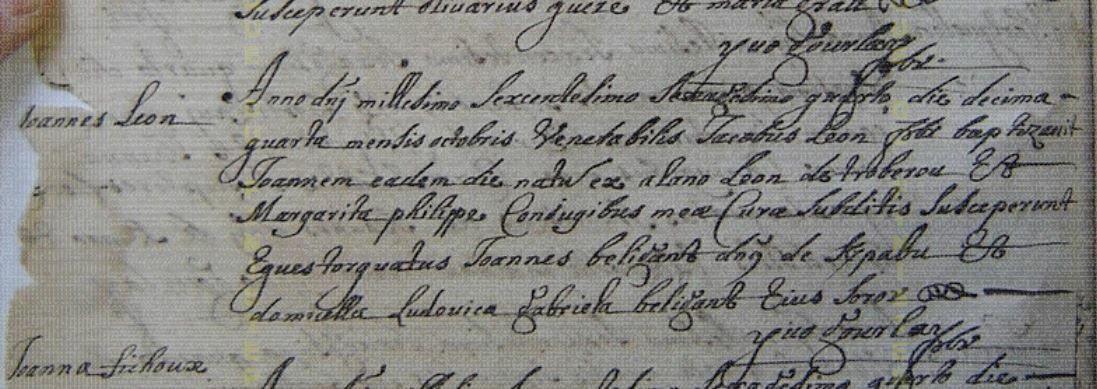 Susceperunt olivarius guere Et maria
yuo Gourlay
pbr.
Joannes Leon
Anno dnj millesimo sexcentesimo sexagesimo quarto die decima-
quarta mensis octobris Venerabilis Jacobus Leon pbr baptizauit
Joannem eadem die natū ex alano Leon de troberou Et
Margarita philippe Conjugibus meæ Curæ subditis susceperunt
Eques torquatus Joannes belizant dnȷ̃ de Kpabu Et
domicella Ludovica Gabriela belizant Eius soror
yuo Gourlay
pbr
Joanna fichoux
quarto die